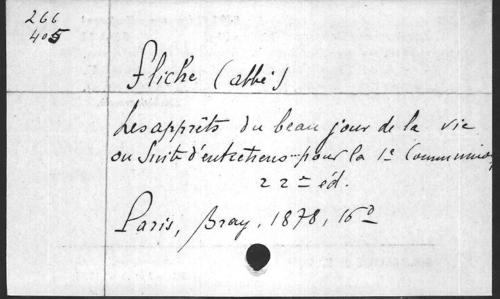 266
405
Fliche (abbé)
Les apprêts du beau jour de la vie
ou Suite d'entretiens pour la 1e Communion
22e éd.
Paris, Bray, 1878, 16°